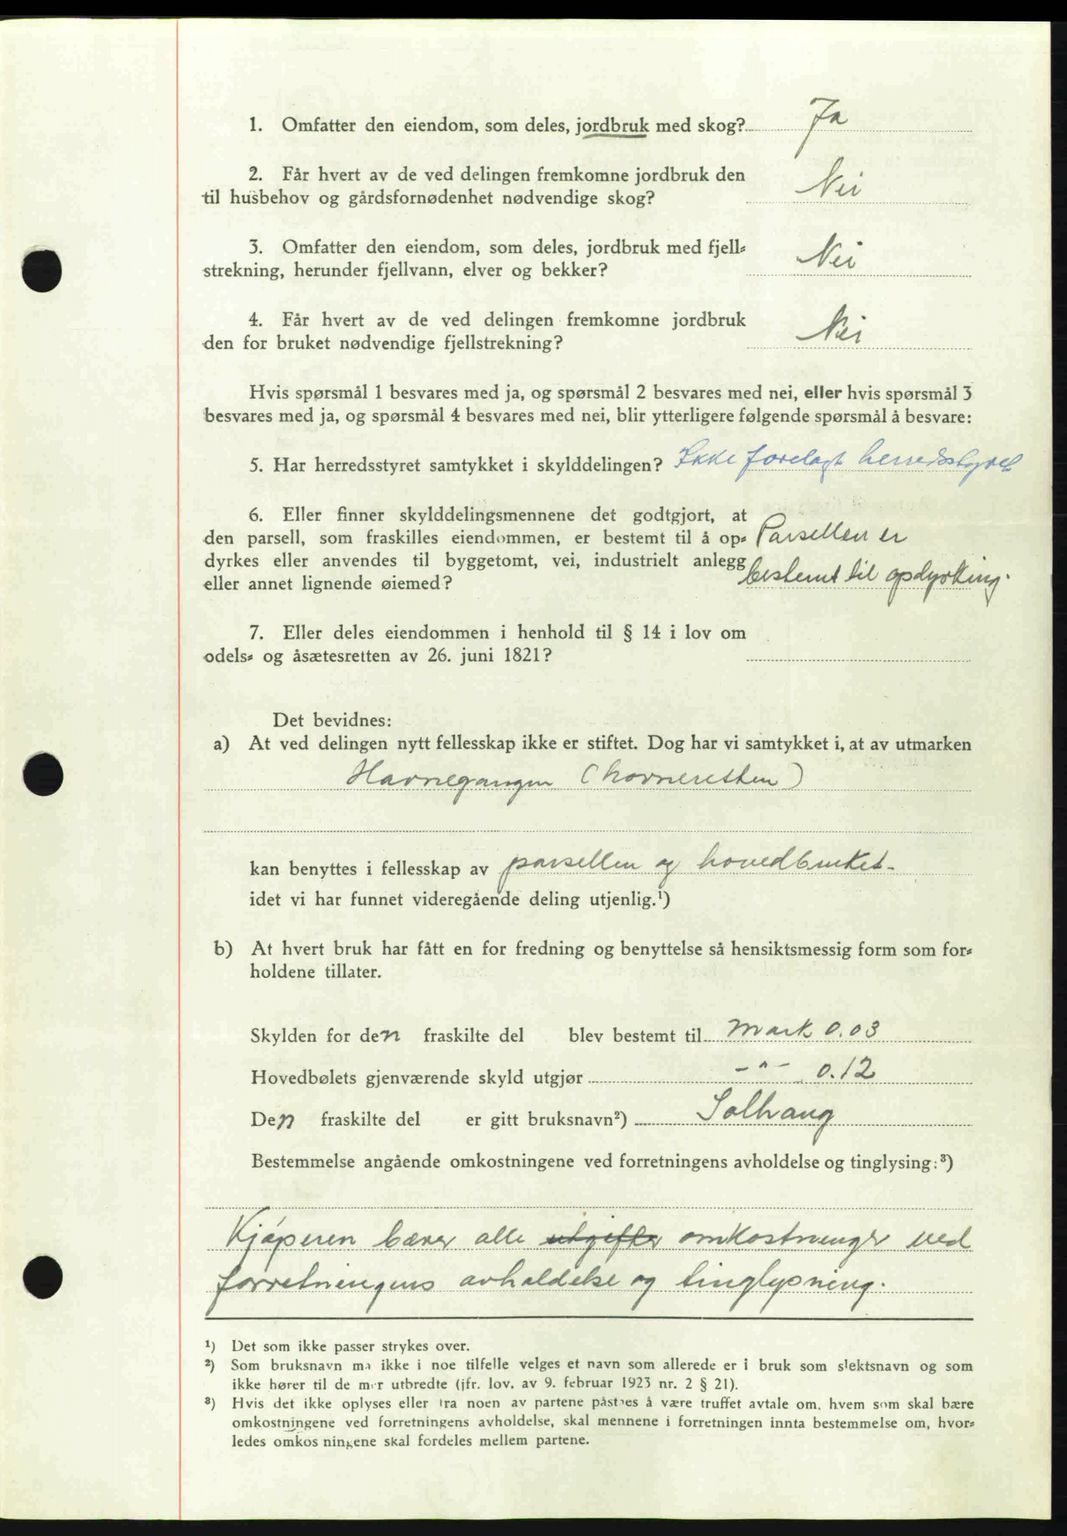 1. Omfatter den eiendom, som deles, jordbruk med skog? Ja
2. Får hvert av de ved delingen fremkomne jordbruk den
til husbehov og gårdsfornødenhet nødvendige skog? Nei
3. Omfatter den eiendom, som deles, jordbruk med fjell⸗
strekning, herunder fjellvann, elver og bekker? Nei
4. Får hvert av de ved delingen fremkomne jordbruk
den for bruket nødvendige fjellstrekning? Nei
Hvis spørsmål 1 besvares med ja, og spørsmål 2 besvares med nei, eller hvis spørsmål 3
besvares med ja, og spørsmål 4 besvares med nei, blir ytterligere følgende spørsmål å besvare:
5. Har herredsstyret samtykket i skylddelingen? Ikke forelagt herredsstyret
6. Eller finner skylddelingsmennene det godtgjort, at
den parsell, som fraskilles eiendommen, er bestemt til å op⸗ Parsellen er
dyrkes eller anvendes til byggetomt, vei, industrielt anlegg
eller annet lignende øiemed? bestemt til opdyrking.
7. Eller deles eiendommen i henhold til § 14 i lov om
odels⸗ og åsætesretten av 26. juni 1821?
Det bevidnes:
a) At ved delingen nytt fellesskap ikke er stiftet. Dog har vi samtykket i, at av utmarken
Havnegangen (havneretten)
kan benyttes i fellesskap av parsellen og hovedbruket-
idet vi har funnet videregående deling utjenlig.¹)
b) At hvert bruk har fått en for fredning og benyttelse så hensiktsmessig form som for⸗
holdene tillater.
Skylden for den fraskilte del blev bestemt til Mark 0.03
Hovedbølets gjenværende skyld utgjør -"- 0.12
Den fraskilte del er gitt bruksnavn²) Solhaug
Bestemmelse angående omkostningene ved forretningens avholdelse og tinglysing:³)
Kjøperen bærer alle utgifter omkostninger ved
forretningens avholdelse og tinglysning.
¹) Det som ikke passer strykes over.
²) Som bruksnavn må ikke i noe tilfelle velges et navn som allerede er i bruk som slektsnavn og som
ikke hører til de mer utbredte (jfr. lov. av 9. februar 1923 nr. 2 § 21).
³) Hvis det ikke oplyses eller fra noen av partene påståes å være truffet avtale om, hvem som skal bære
omkostningene ved forretningens avholdelse, skal mennene i forretningen innta bestemmelse om, hvor⸗
ledes omkostningene skal fordeles mellem partene.